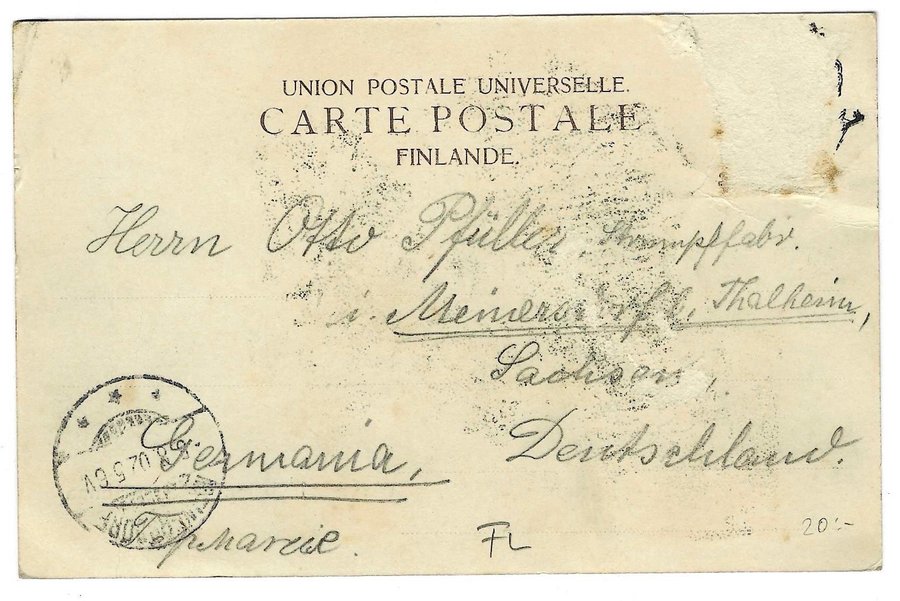 UNION POSTALE UNIVERSELLE.
CARTE POSTALE
FINLANDE.
Herrn Otto Pfüller, Strumpffabr.
i. Meinersdorf b. Thalheim,
Sachsen,
Deutschland.
Germania,
Германія.
FL
20:-